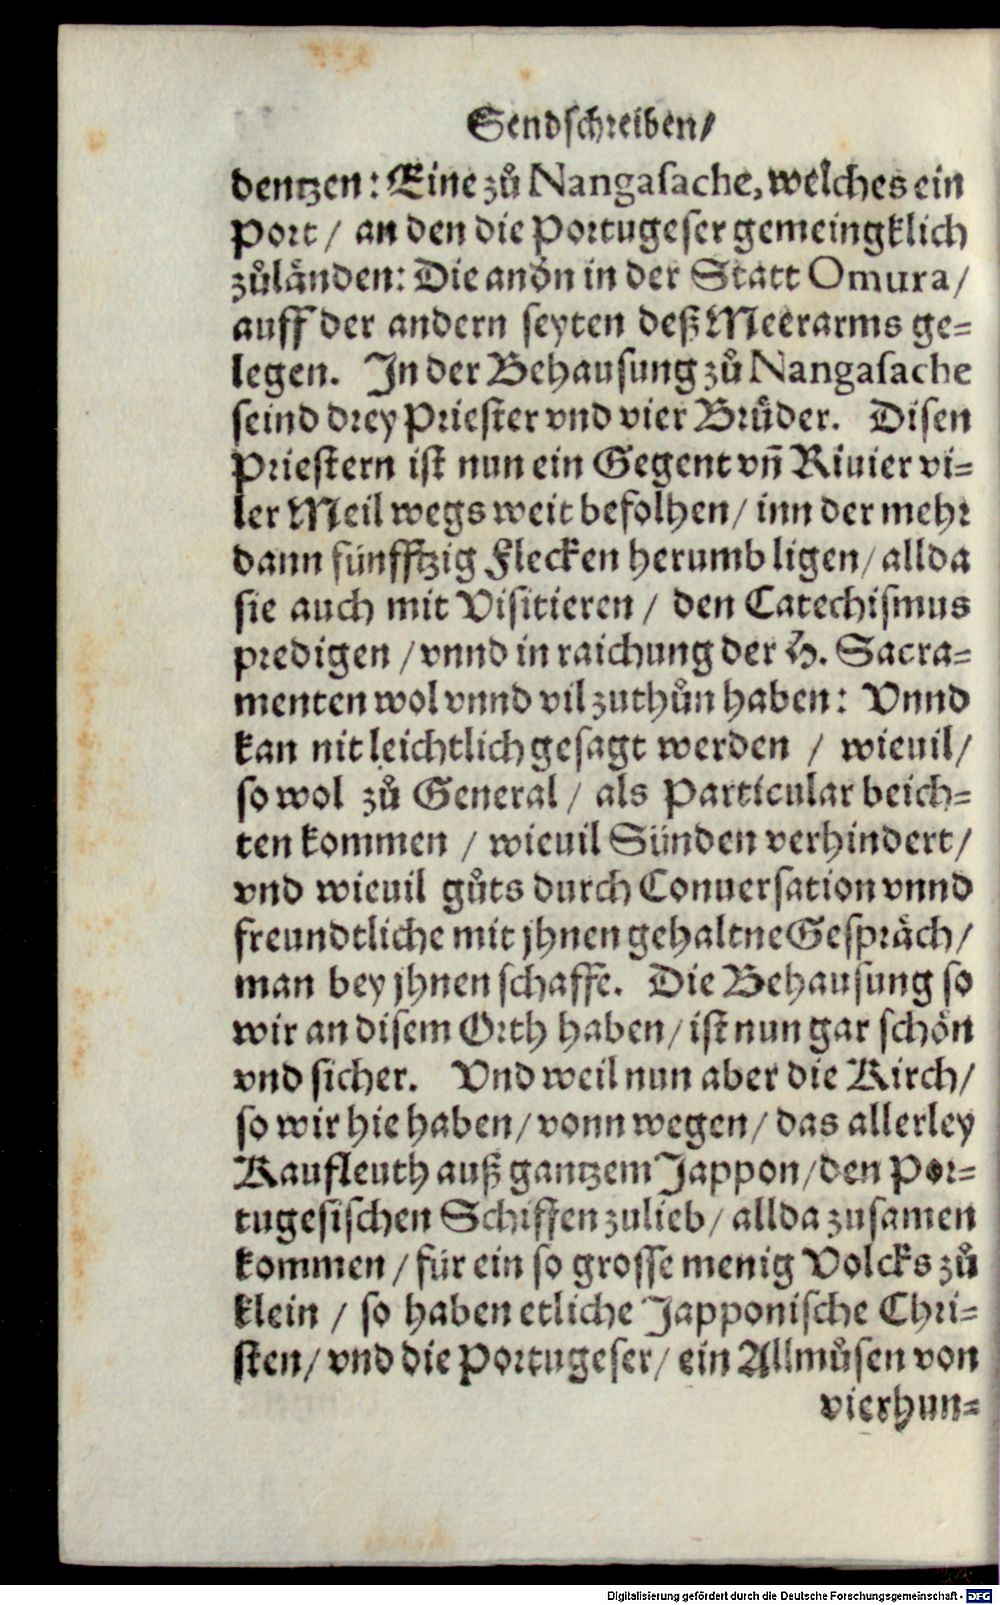 Sendschreiben/
dentzen: Eine zů Nangasache, welches ein
Port / an den die Portugeser gemeingklich
zůländen: Die andn in der Statt Omura/
auff der andern seyten deß Meerarms ge-
legen. In der Behausung zů Nangasache
seind drey Priester vnd vier Brůder. Disen
Priestern ist nun ein Gegent vñ Riuier vi-
ler Meil wegs weit befolhen/ inn der mehr
dann fünfftzig Flecken herumb ligen/ allda
sie auch mit Visitieren / den Catechismus
predigen / vnnd in raichung der H. Sacra-
menten wol vnnd vil zuthůn haben: Vnnd
kan nit leichtlich gesagt werden / wieuil/
so wol zů General / als Particular beich-
ten kommen / wieuil Sünden verhindert/
vnd wieuil gůts durch Conuersation vnnd
freundtliche mit jhnen gehaltne Gespräch/
man bey jhnen schaffe. Die Behausung so
wir an disem Orth haben/ ist nun gar schön
vnd sicher. Vnd weil nun aber die Kirch/
so wir hie haben/ vonn wegen/ das allerley
Kaufleuth auß gantzem Jappon/ den Por-
tugesischen Schiffen zulieb/ allda zusamen
kommen / für ein so grosse menig Volcks zů
klein / so haben etliche Japponische Chri-
sten/ vnd die Portugeser/ ein Allmůsen von
vierhun-
Digitalisierung gefördert durch die Deutsche Forschungsgemeinschaft - DFG